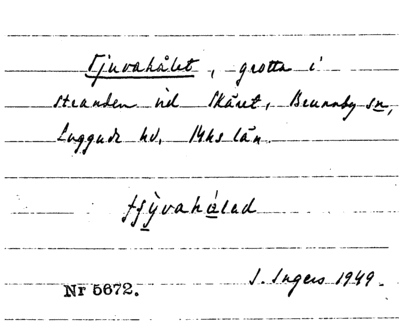 Tjuvahålet, grotta i
stranden vid Skäret, Brunnby sn,
Luggude hd, Mhs län.
tʃÿvahålad
I. Ingers 1949.
Nr 5672.